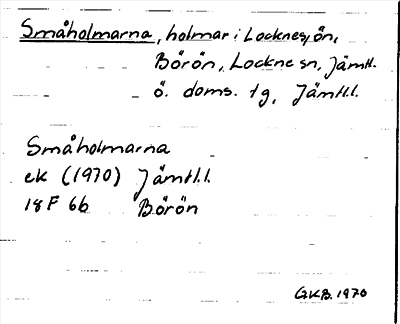 Småholmarna, holmar i Locknesjön,
Börön, Lockne sn, Jämtl.
ö. doms. tg, Jämtl.l.
Småholmarna
ek (1970) Jämtl.l.
18F 6b Börön
GKB. 1970